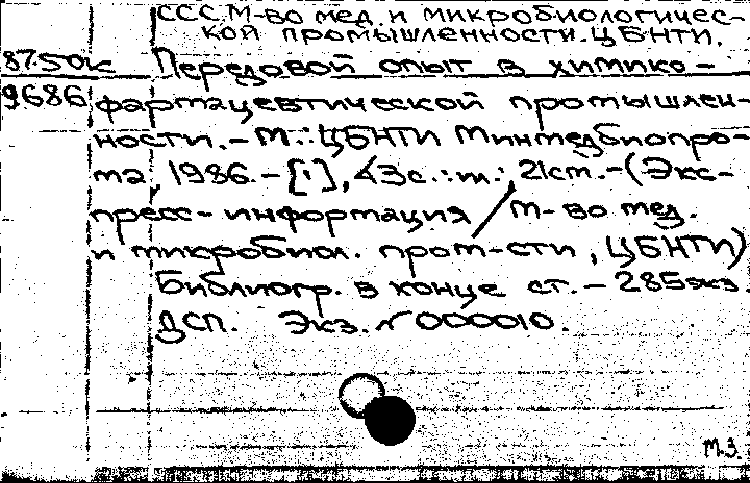 СССР М-во мед. и микробиологичес-
кой промышленности. ЦБНТИ.
87.50к Передовой опыт в химико-
9686 фармацевтической промышлен-
ности. - М.: ЦБНТИ Минмедбиопро-
ма, 1986. - [1], 43с.: ил.; 21см. - (Экс-
пресс-информация / М-во мед.
и микробиол. пром-сти, ЦБНТИ)
Библиогр. в конце ст. - 285экз.
ДСП. Экз. № 000010.
М.З.